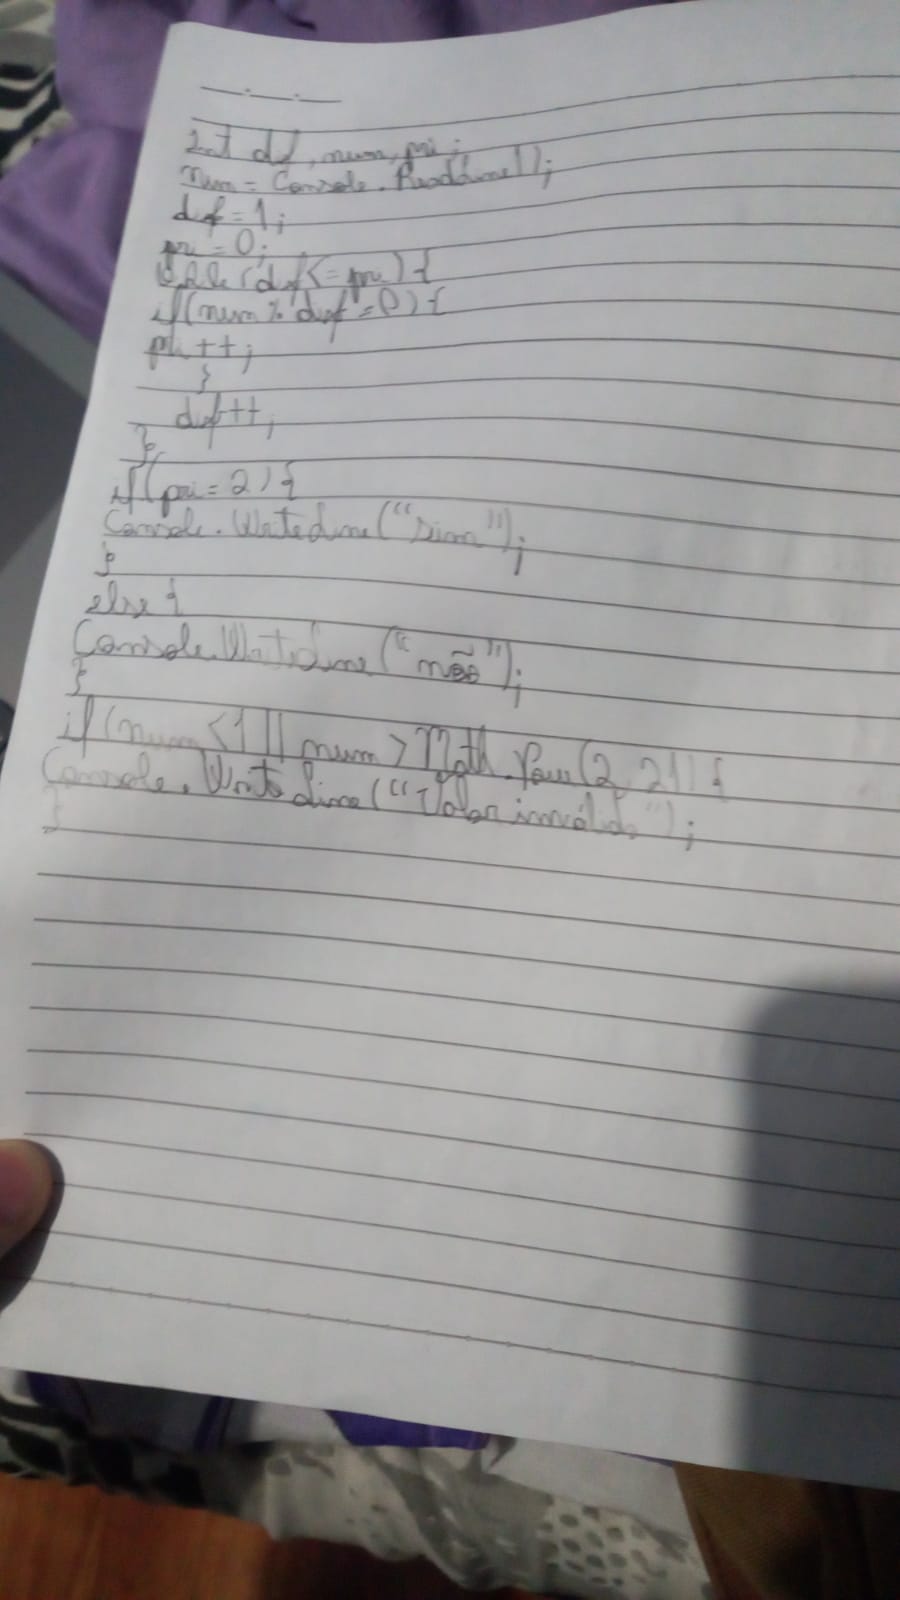 Int dif, num, pri;
num = Console.ReadLine();
dif = 1;
pri = 0;
While (dif <= pri) {
if (num % dif = 0) {
pri ++;
}
dif++;
}
if (pri = 2) {
Console.WriteLine("Sim");
}
else {
Console.WriteLine("não");
}
if (num < 1 || num > Math.Pow(2, 21)) {
Console.WriteLine("Valor inválido");
}